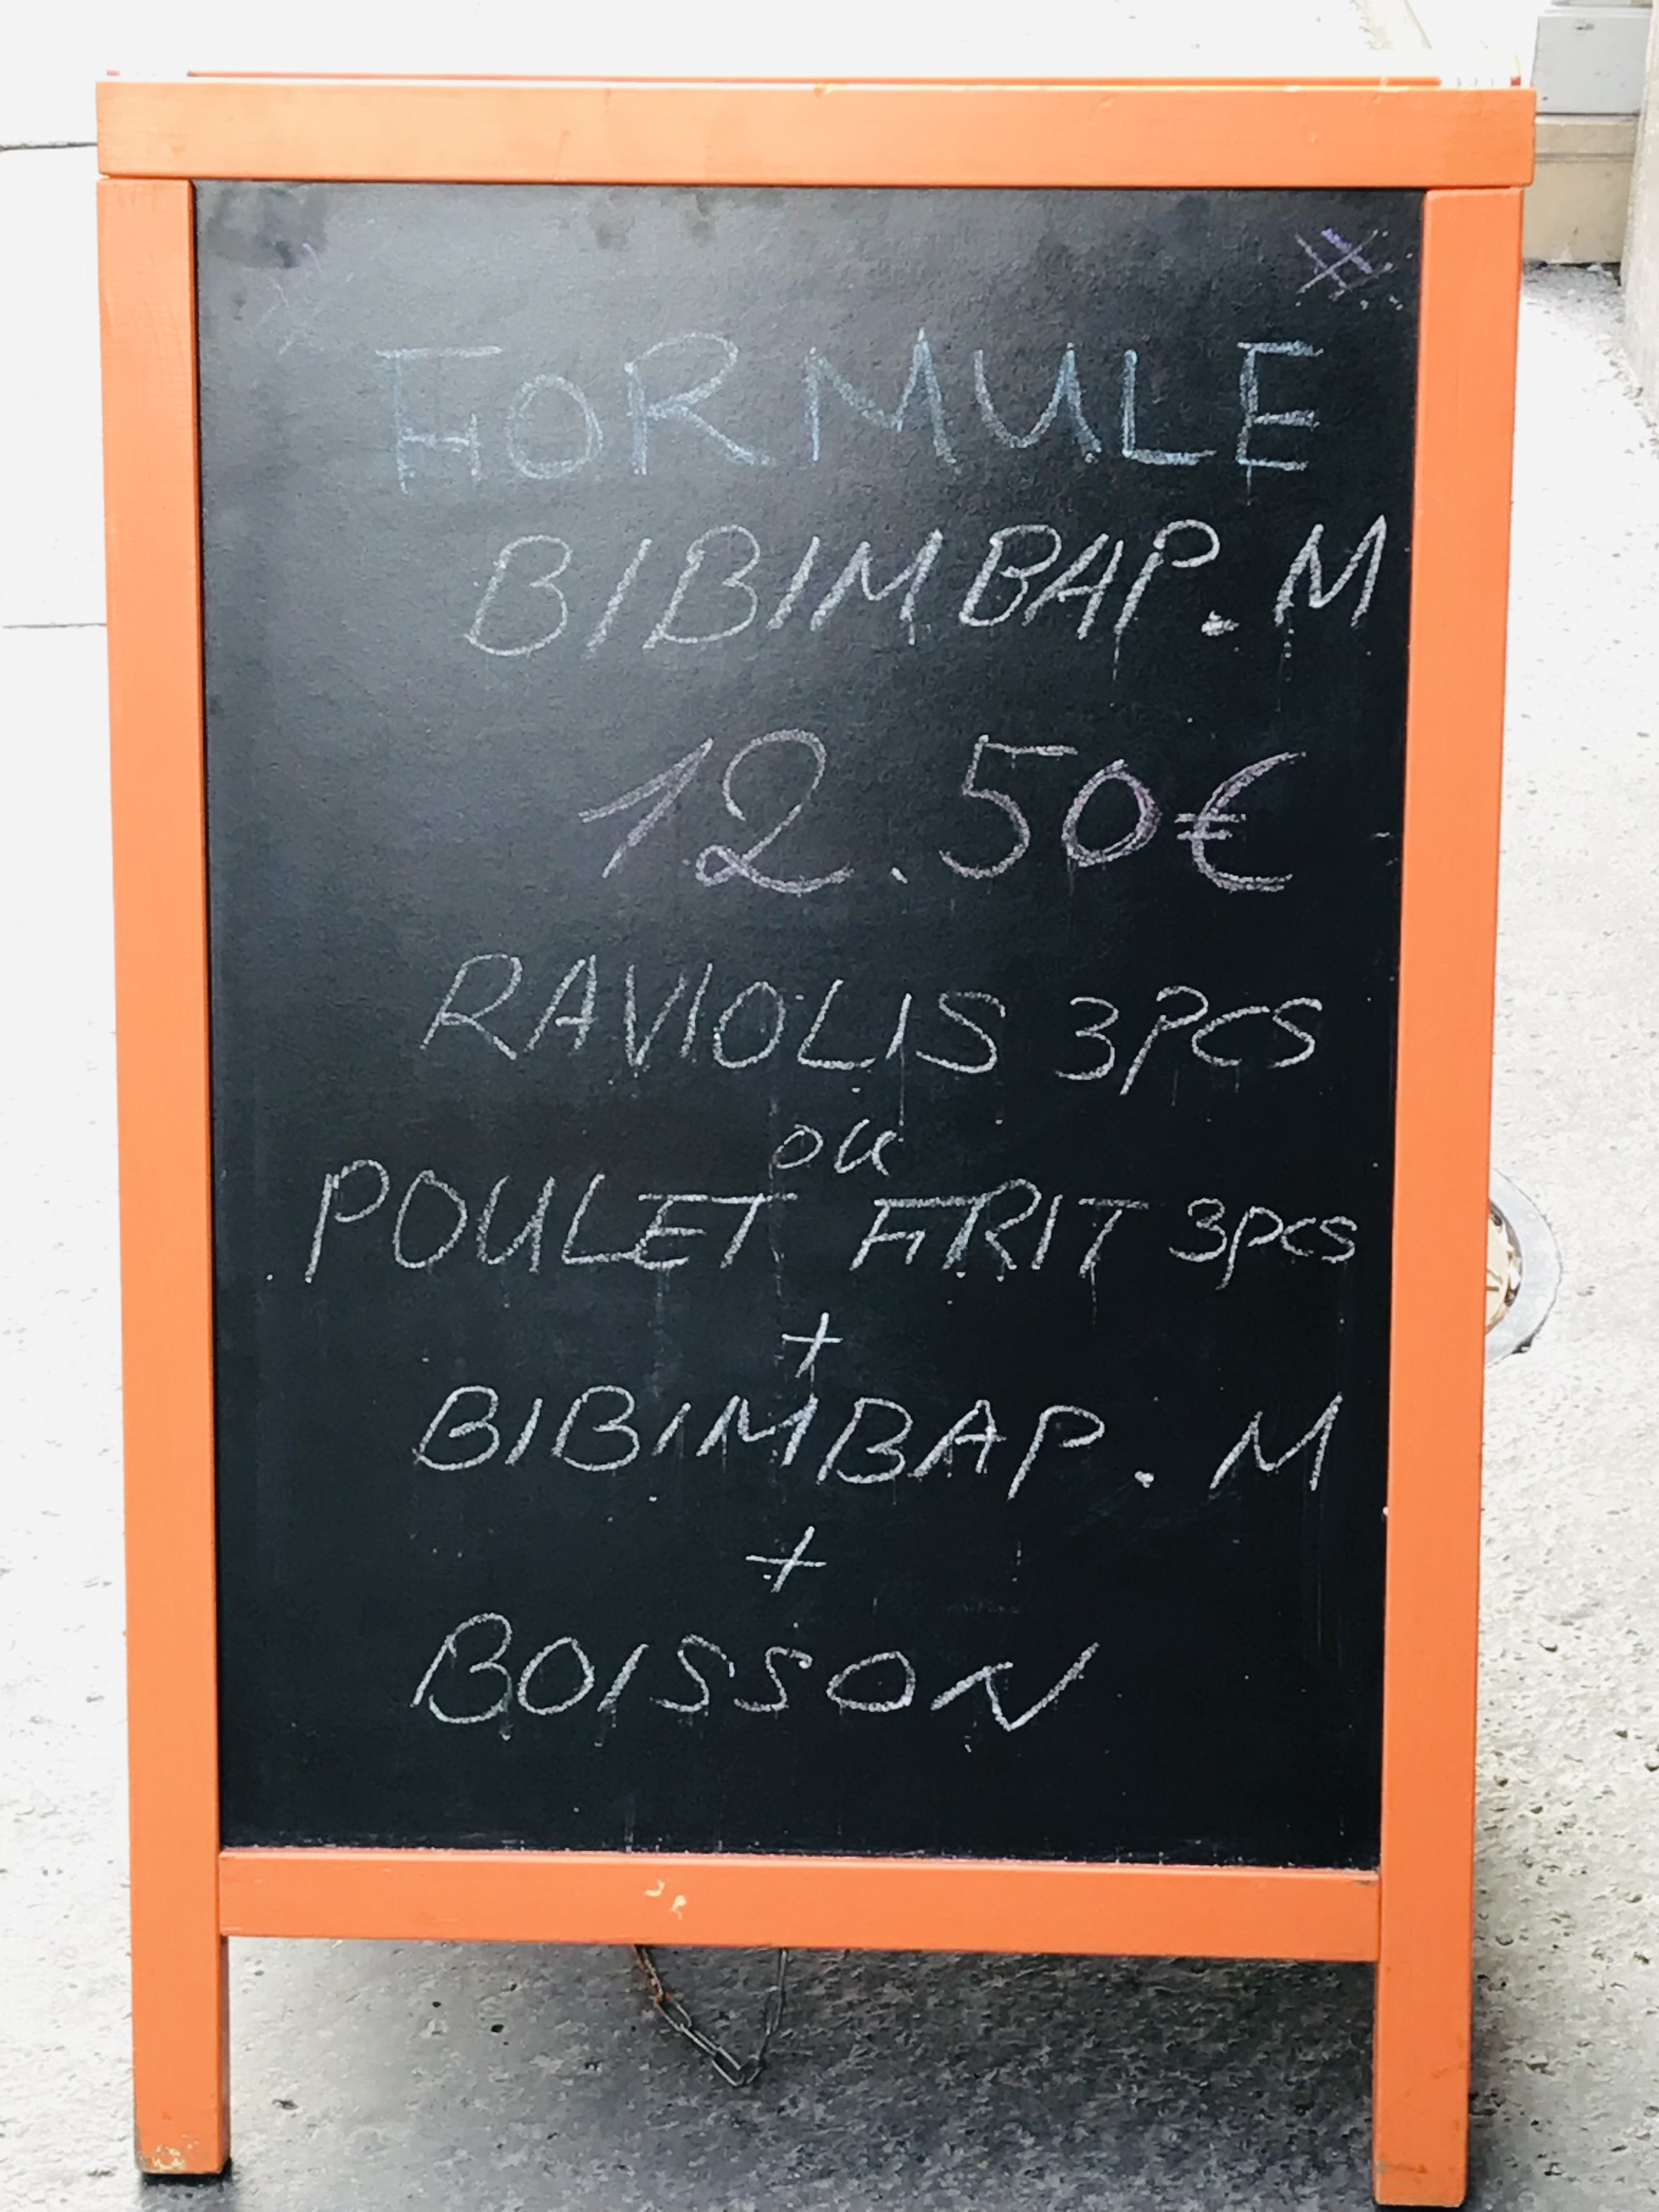 FORMULE
BIBIMBAP. M
12.50€
RAVIOLIS 3PCS
ou
POULET FRIT 3pcs
+
BIBIMBAP. M
+
BOISSON